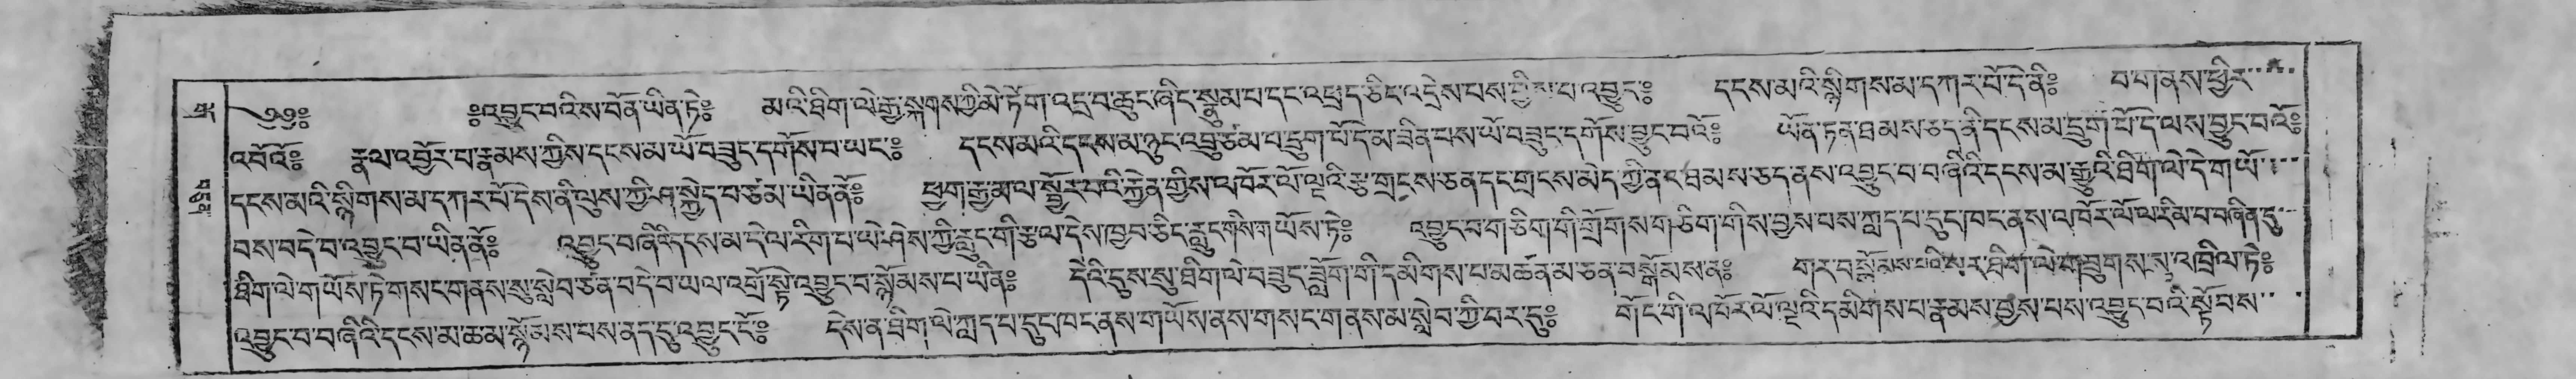 ༄༅༅༔ ༔འབྱུང་བའི་ས་བོན་ཡིན་ཏེ༔ མའི་ཐིག་ལེ་རྒྱ་སྐེགས་ཀྱི་མེ་ཏོག་འདྲ་བ་ཆུང་ཞིང་སྣུམ་པ་དང་འཕྲད་ཅིང་འདྲེས་པས་ཀྱིས་པ་འབྱུང༔ དྭངས་མའི་སྙིགས་མ་དཀར་པོ་དེ་ནི༔ བ་གནས་ཕྱིར
འབོའོ༔ རྣལ་འབྱོར་བ་རྣམས་ཀྱིས་དངས་མ་ཡོ་བཟུང་དགོས་པ་ཡང༔ དངས་མའི་དངས་མ་ཉུང་འབྲུ་ཙམ་པ་དྲུག་པོ་དེ་མ་ཟིན་པས་ཡོ་བཟུང་དགོས་བྱུང་བའོ༔ ཡོན་ཏན་ཐམས་ཅད་ནི་དངས་མ་དྲུག་པོ་དེ་ལས་བྱུང་བའོ༔
དངས་མའི་སྙིགས་མ་དཀར་པོ་དེས་ནི་ལུས་ཀྱི་ཤ་སྐྱེད་བ་ཙམ་ཡིན་ནོ༔ ཕྱག་རྒྱ་མ་ལ་སྦྱོར་བའི་རྐྱེན་གྱིས་འཁོར་ལོ་ལྔའི་རྩ་གྲངས་ཅན་དང་གྲངས་མེད་ཀྱི་ནང་ཐམས་ཅད་ནས་འབྱུང་བ་བཞིའི་དངས་མ་རྒྱུའི་ཐིག་ལེ་དེ་གཡོ
བས་བདེ་བ་འབྱུང་བ་ཡིན་ནོ༔ འབྱུང་བཞིའི་དངས་མ་དེ་ལ་རིག་པ་ཡེ་ཤེས་ཀྱི་རླུང་གི་རྩལ་དེས་ཁྱབ་ཅིང་རླུང་གིས་གཡོས་ཏེ༔ འབྱུང་བ་གཅིག་གི་གྲོགས་གཅིག་གིས་བྱས་པས་ཀླད་པ་དུང་ཁང་ནས་འཁོར་ལོ་ལ་རིམ་པ་བཞིན་དུ
ཐིག་ལེ་གཡོས་ཏེ་གསང་གནས་སུ་སླེབ་ཙ་ན་བདེ་བ་ཡལ་འགྲོ་སྟེ་འབྱུང་བ་སྙོམས་པ་ཡིན༔ དེའི་དུས་སུ་ཐིག་ལེ་བཟུང་བཟློག་གི་དམིགས་པ་མཚན་མ་ཅན་བསྒོམས་ན༔ གར་བསྒོམས་པའི་སར་ཐིག་ལེ་གཟུགས་སུ་འཁྲིལ་ཏེ༔
འབྱུང་བ་བཞིའི་དངས་མ་ཆ་མ་སྙོམས་པས་ནད་དུ་འབྱུང་ངོ༔ དེས་ན་ཐིག་ལེ་ཀླད་པ་དུང་ཁང་ནས་གཡོས་ནས་གསང་གནས་མ་སླེབ་ཀྱི་བར་དུ༔ གོང་གི་འཁོར་ལོ་ལྔའི་དམིགས་པ་རྣམས་བྱས་པས་འབྱུང་བའི་སྟོབས